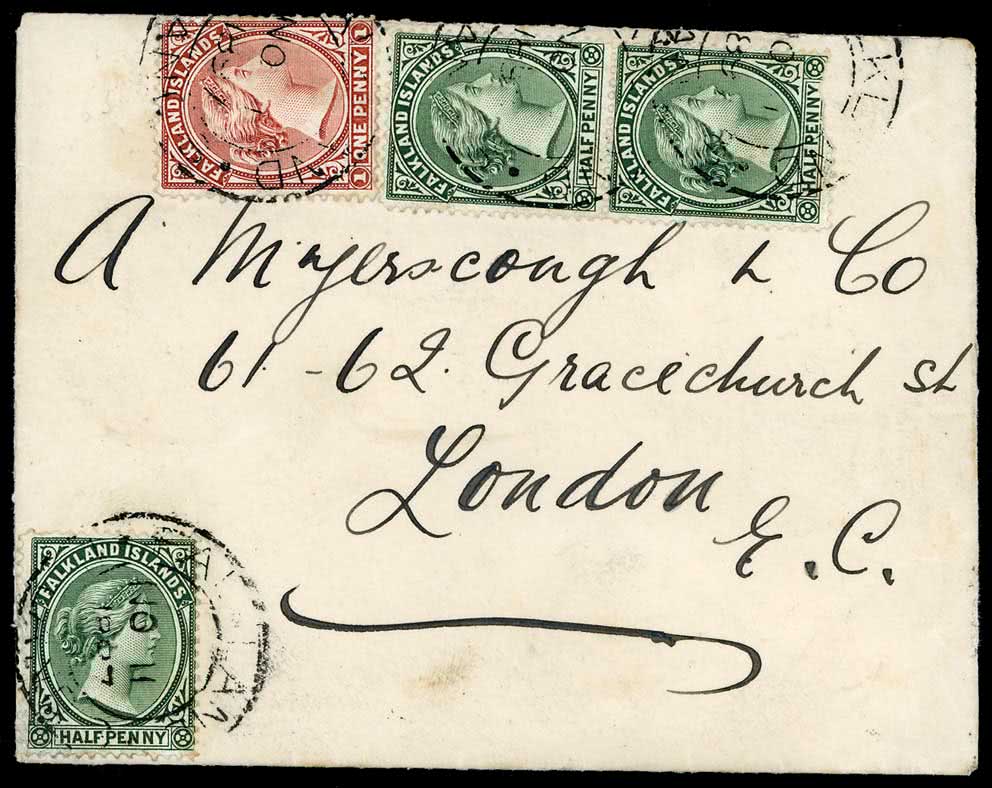 FALKLAND ISLANDS
1 ONE PENNY 1
FALKLAND ISLANDS
HALF PENNY
FALKLAND ISLANDS
HALF PENNY
A Myerscough & Co
61-62. Gracechurch St
London
E.C.
FALKLAND ISLANDS
HALF PENNY